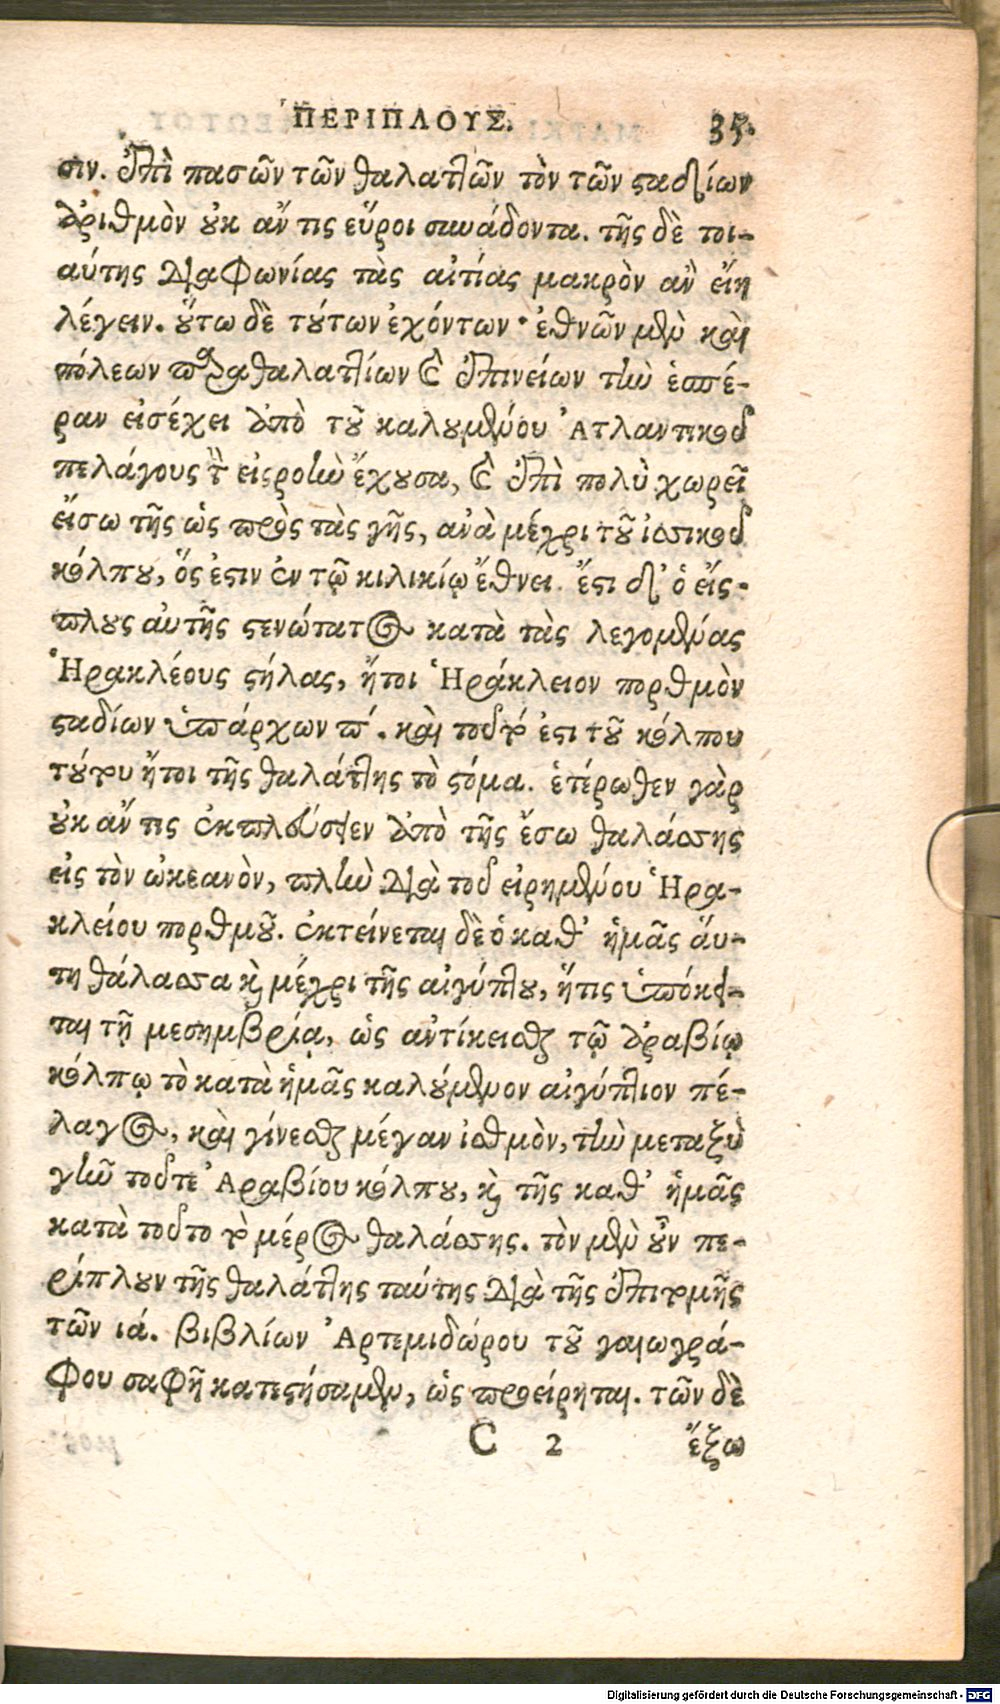 ΠΕΡΙΠΛΟΥΣ. 35.
σιν. ἐπὶ πασῶν τῶν θαλαττῶν τὸν τῶν σταδίων
ἀριθμὸν οὐκ ἄν τις εὕροι συνάδοντα. τῆς δὲ τοι-
αύτης διαφωνίας τὰς αἰτίας μακρὸν ἂν εἴη
λέγειν. οὕτω δὲ τούτων ἐχόντων· ἐθνῶν μὲν καὶ
πόλεων παραθαλαττίων καὶ ἐπινείων τὴν ἑσπέ-
ραν εἰσέχει ἀπὸ τοῦ καλουμένου Ἀτλαντικοῦ
πελάγους τ εἰςροὴν ἔχουσα, καὶ ἐπὶ πολὺ χωρεῖ
εἴσω τῆς ὡς πρὸς τὰς γῆς, ἀνὰ μέχρι τοῦ ἰσσικοῦ
κόλπου, ὅς ἐστιν ἐν τῷ κιλικίῳ ἔθνει. ἔστι δ' ὁ εἴς-
πλους αὐτῆς στενώτατος κατὰ τὰς λεγομένας
Ἡρακλέους στήλας, ἤτοι Ἡράκλειον πορθμὸν
σταδίων ὑπάρχων π΄. καὶ τοῦτό ἐστι τοῦ κόλπου
τούτου ἤτοι τῆς θαλάττης τὸ στόμα. ἑτέρωθεν γὰρ
οὐκ ἄν τις ἐκπλεύσειεν ἀπὸ τῆς ἔσω θαλάσσης
εἰς τὸν ὠκεανὸν, πλὴν διὰ τοῦ εἰρημένου Ἡρα-
κλείου πορθμοῦ. ἐκτείνεται δὲ ὁ καθ' ἡμᾶς αὕ-
τη θάλασσα καὶ μέχρι τῆς αἰγύπτου, ἥτις ὑπόκει-
ται τῇ μεσημβρίᾳ, ὡς ἀντίκεισθαι τῷ ἀραβίῳ
κόλπῳ τὸ κατὰ ἡμᾶς καλούμενον αἰγύπτιον πέ-
λαγος, καὶ γίνεσθαι μέγαν ἰσθμὸν, τὴν μεταξὺ
γῆν τοῦτε Ἀραβίου κόλπου, καὶ τῆς καθ' ἡμᾶς
κατὰ τοῦτο τὸ μέρος θαλάσσης. τὸν μὲν οὖν πε-
ρίπλουν τῆς θαλάττης ταύτης διὰ τῆς ἐπιτομῆς
τῶν ιά. βιβλίων Ἀρτεμιδώρου τοῦ γαιωγρά-
φου σαφῆ κατεστήσαμεν, ὡς προείρηται. τῶν δὲ
C 2 ἔξω
Digitalisierung gefördert durch die Deutsche Forschungsgemeinschaft - DFG